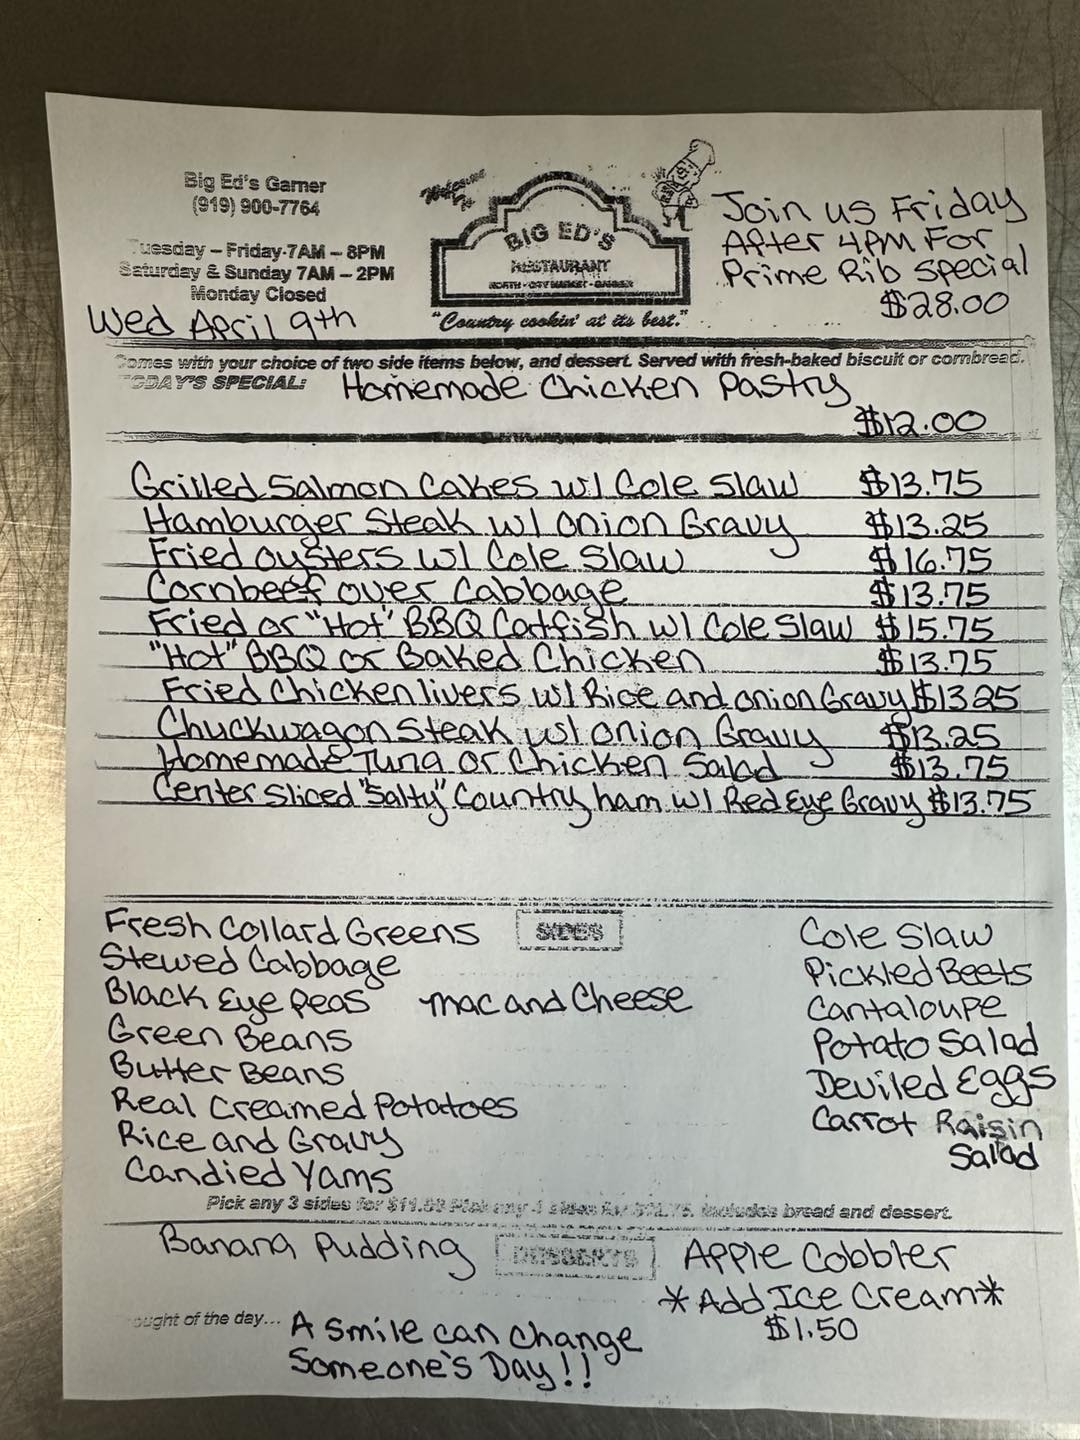 Big Ed's Garner
(919) 900-7764
Tuesday – Friday 7AM – 8PM
Saturday & Sunday 7AM – 2PM
Monday Closed
Wed April 9th
BIG ED'S
RESTAURANT
NORTH - CITY MARKET - GARNER
"Country cookin' at its best."
Join us Friday
After 4PM For
Prime Rib Special
$28.00
Comes with your choice of two side items below, and dessert. Served with fresh-baked biscuit or cornbread.
TODAY'S SPECIAL: Homemade Chicken Pastry
$12.00
Grilled Salmon Cakes w/ Cole Slaw $13.75
Hamburger Steak w/ onion Gravy $13.25
Fried oysters w/ Cole Slaw $16.75
Cornbeef over Cabbage $13.75
Fried or "Hot" BBQ Catfish w/ Cole Slaw $15.75
"Hot" BBQ or Baked Chicken $13.75
Fried Chicken livers w/ Rice and onion Gravy $13.25
Chuckwagon Steak w/ onion Gravy $13.25
Homemade Tuna or Chicken Salad $13.75
Center Sliced "Salty" Country ham w/ Red Eye Gravy $13.75
SIDES
Fresh Collard Greens
Stewed Cabbage
Black Eye Peas
Green Beans
Butter Beans
Real Creamed Potatoes
Rice and Gravy
Candied Yams
Mac and Cheese
Cole Slaw
Pickled Beets
Cantaloupe
Potato Salad
Deviled Eggs
Carrot Raisin
Salad
Pick any 3 sides for Pick any sides for includes bread and dessert.
DESSERTS
Banana Pudding
Apple Cobbler
*Add Ice Cream*
$1.50
of the day... A Smile can change
Someone's Day!!